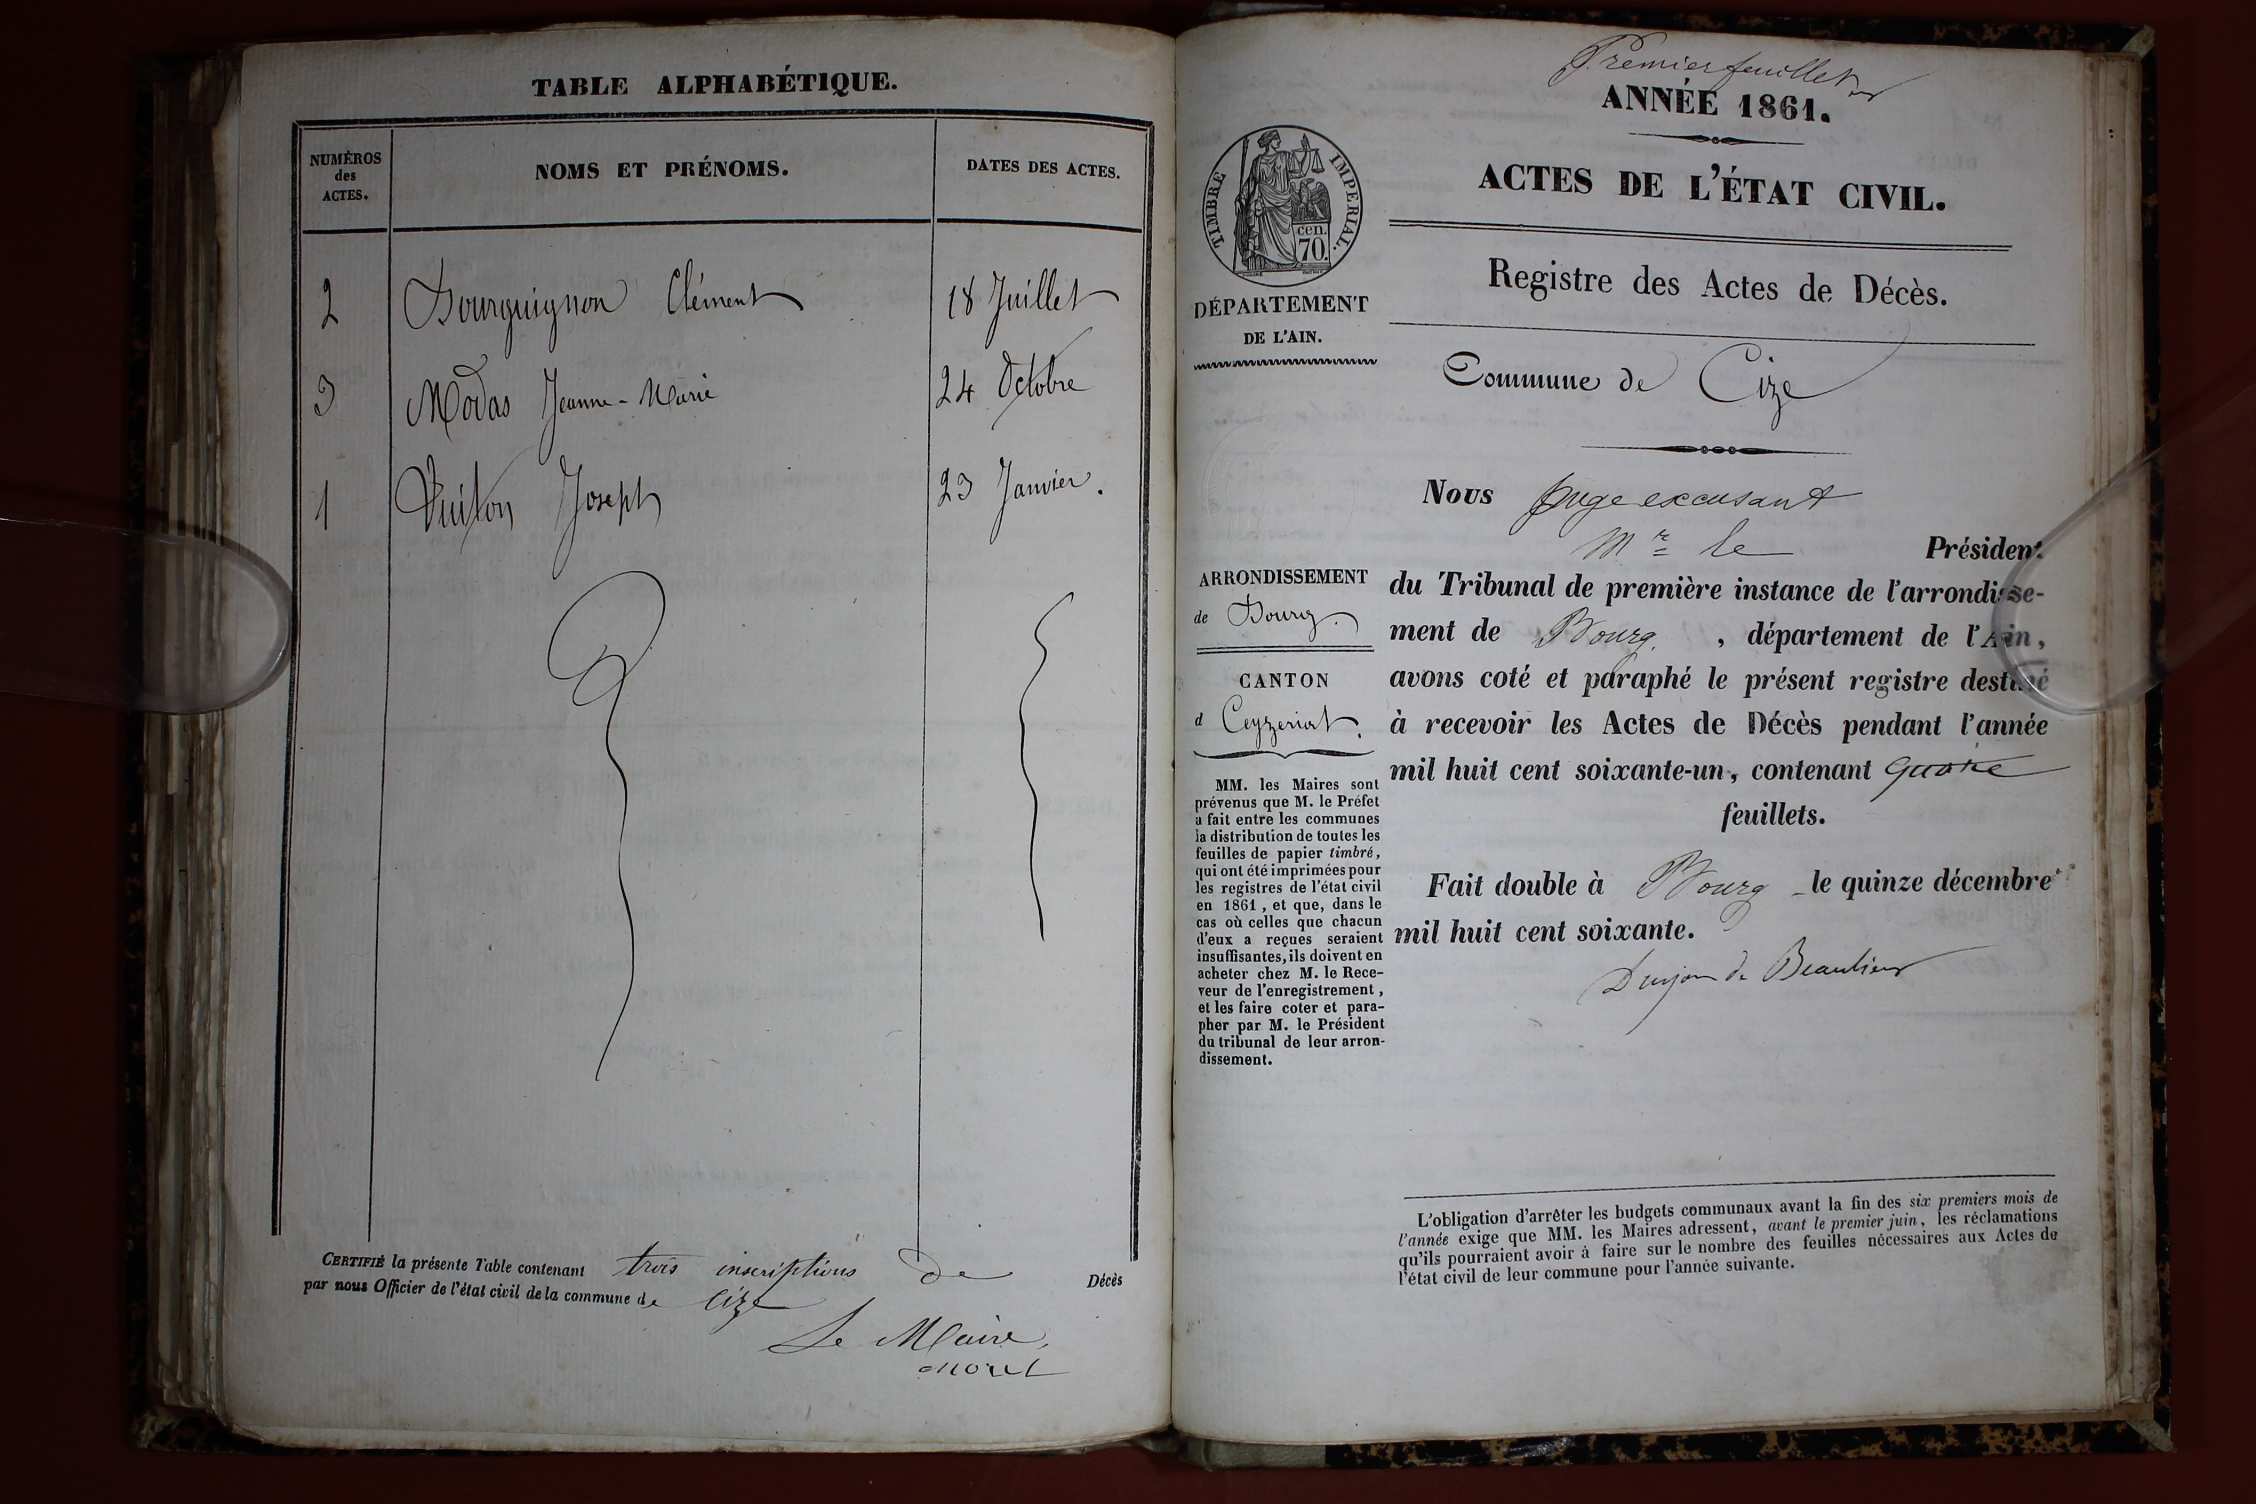 TABLE ALPHABÉTIQUE.
NUMÉROS des ACTES.
NOMS ET PRÉNOMS.
DATES DES ACTES.
2 Bourguignon Clément 18 Juillet
3 Modas Jeanne-Marie 24 Octobre
1 Vuiton Joseph 23 Janvier.
CERTIFIÉ la présente Table contenant trois inscriptions de Décès
par nous Officier de l'état civil de la commune de Cize
Le Maire,
Morel
Premier feuillet
ANNÉE 1861.
ACTES DE L'ÉTAT CIVIL.
TIMBRE IMPÉRIAL.
cen.
70.
DÉPARTEMENT
DE L'AIN.
Registre des Actes de Décès.
Commune de Cize
Nous juge excusant
Mr le Président
du Tribunal de première instance de l'arrondisse-
ment de Bourg, département de l'Ain,
avons coté et paraphé le présent registre destiné
à recevoir les Actes de Décès pendant l'année
mil huit cent soixante-un, contenant quatre
feuillets.
Fait double à Bourg le quinze décembre
mil huit cent soixante.
de Beaulieu
ARRONDISSEMENT
de Bourg.
CANTON
d Ceyzeriat.
MM. les Maires sont
prévenus que M. le Préfet
a fait entre les communes
la distribution de toutes les
feuilles de papier timbré,
qui ont été imprimées pour
les registres de l'état civil
en 1861, et que, dans le
cas où celles que chacun
d'eux a reçues seraient
insuffisantes, ils doivent en
acheter chez M. le Rece-
veur de l'enregistrement,
et les faire coter et para-
pher par M. le Président
du tribunal de leur arron-
dissement.
L'obligation d'arrêter les budgets communaux avant la fin des six premiers mois de
l'année exige que MM. les Maires adressent, avant le premier juin, les réclamations
qu'ils pourraient avoir à faire sur le nombre des feuilles nécessaires aux Actes de
l'état civil de leur commune pour l'année suivante.